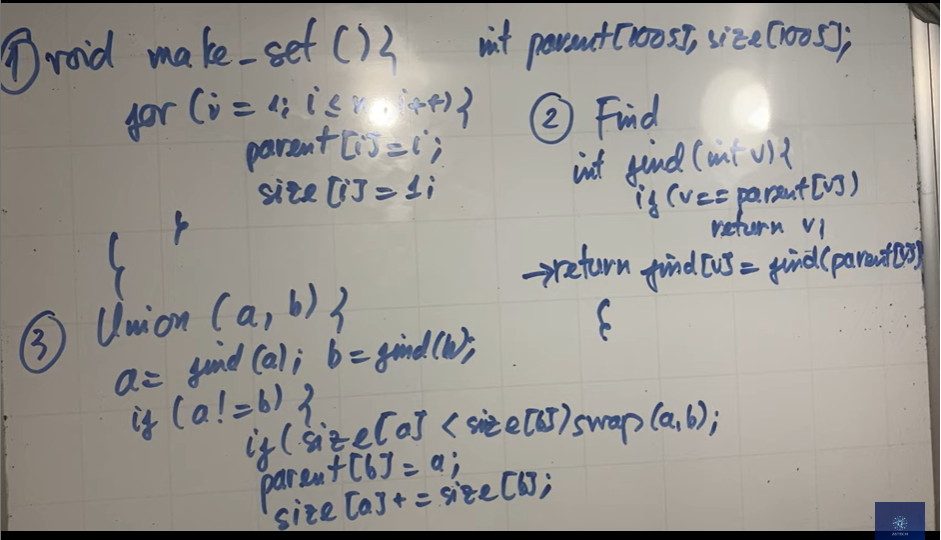 ① void make_set () {
int parent[1005], size[1005];
for (i = 1; i ≤ n; i++) {
parent[i] = i;
size[i] = 1;
}
}
② Find
int find (int v) {
if (v == parent[v])
return v;
→ return find[v] = find(parent[v])
}
③ Union (a, b) {
a = find (a); b = find(b);
if (a != b) {
if (size[a] < size[b]) swap(a,b);
parent[b] = a;
size[a] += size[b];